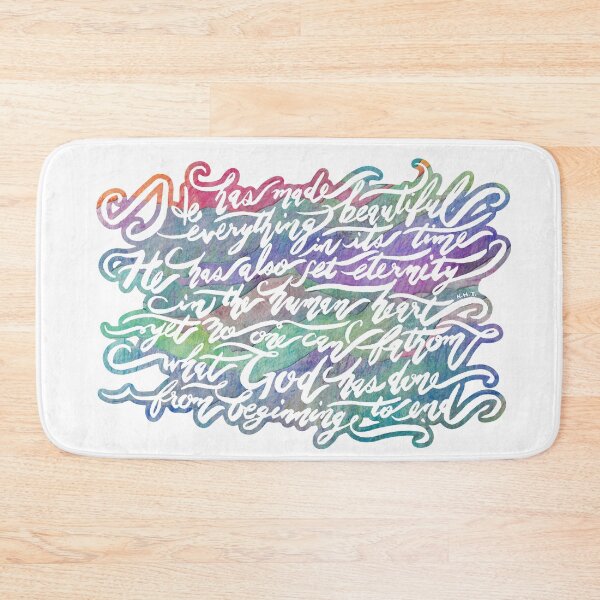 He has made
everything beautiful
in its time
He has also set eternity
in the human heart
yet no one can fathom
what God has done
from beginning to end
N.M.T.